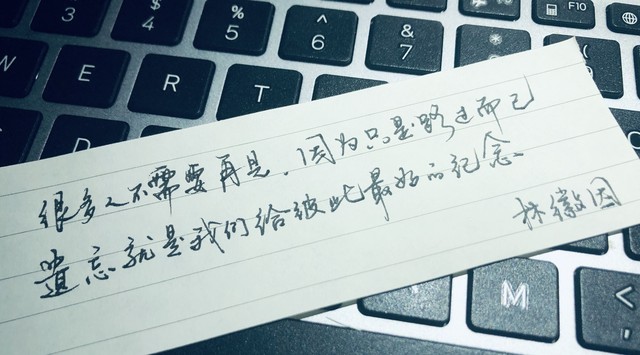 $ 4
% 5
^ 6
& 7
* 8
F10
W E R T
D
很多人不需要再見，因为只是路过而已
遗忘就是我们给彼此最好的纪念。
林徽因
M
< ,